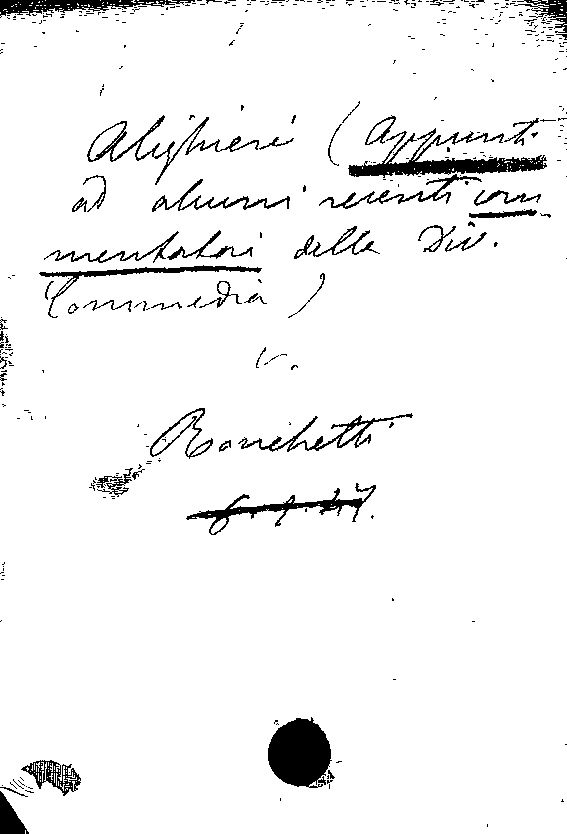 Alighieri (Appunti
ad alcuni recenti com
mentatori della Div.
Commedia)
v.
Ronchetti